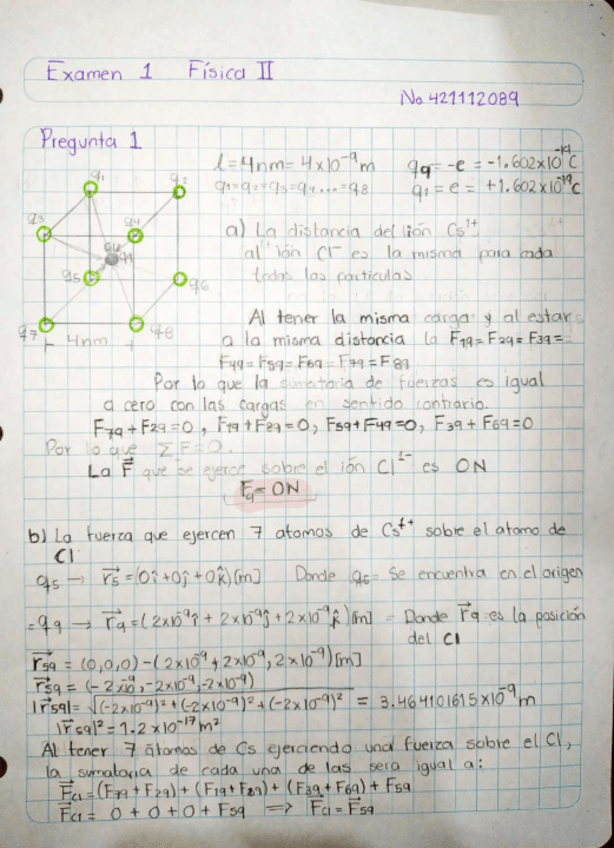 Examen 1 Física II
No. 421112089
Pregunta 1
l = 4nm = 4x10⁻⁹m q9 = -e = -1.602x10⁻¹⁹C
q1=q2=q3=q4....=q8 q1 = e = +1.602x10⁻¹⁹C
q1
q2
q3
q4
q5
q6
q7
q8
4nm
a) La distancia del ión Cs¹⁺
al ión Cl⁻ es la misma para cada
todas las partículas
Al tener la misma carga y al estar
a la misma distancia la F19 = F29 = F39 =
F49 = F59 = F69 = F79 = F89
Por lo que la sumatoria de fuerzas es igual
a cero con las cargas en sentido contrario.
F79 + F29 = 0 , F19 + F89 = 0, F59 + F49 = 0, F39 + F69 = 0
Por lo que ΣF = 0.
La F⃗ que se ejerce sobre el ión Cl¹⁻ es 0N
F9 = 0N
b) La fuerza que ejercen 7 atomos de Cs⁺⁺ sobre el atomo de
Cl
q5 → r⃗5 = (0î + 0ĵ + 0k̂) [m] Donde q5 = Se encuentra en el origen
= q9 → r⃗9 = (2x10⁻⁹î + 2x10⁻⁹ĵ + 2x10⁻⁹k̂) [m] = Donde r⃗9 es la posición
del Cl
r⃗59 = (0,0,0) - (2x10⁻⁹, 2x10⁻⁹, 2x10⁻⁹) [m]
r⃗59 = (-2x10⁻⁹, -2x10⁻⁹, -2x10⁻⁹)
|r⃗59| = √(-2x10⁻⁹)² + (-2x10⁻⁹)² + (-2x10⁻⁹)² = 3.464101615x10⁻⁹m
|r⃗59|² = 1.2x10⁻¹⁷m²
Al tener 7 átomos de Cs ejerciendo una fuerza sobre el Cl,
la sumatoria de cada una de las sera igual a:
F⃗Cl = (F79 + F29) + (F19 + F89) + (F39 + F69) + F59
F⃗Cl = 0 + 0 + 0 + F59 ⟹ F⃗Cl = F⃗59